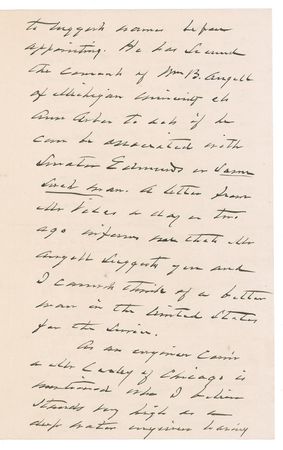 to suggest names before
appointing. He has secured
the consent of Mr B. Angell
of Michigan University at
Ann Arbor to act if he
can be associated with
Senator Edmunds or some
such man. A letter from
Mr Vilas a day or two
ago informs me that Mr
Angell suggests you and
I cannot think of a better
man in the United States
for the service.
As an engineer Com'r
a Mr Cooley of Chicago is
mentioned who I believe
stands very high as a
deep water engineer having